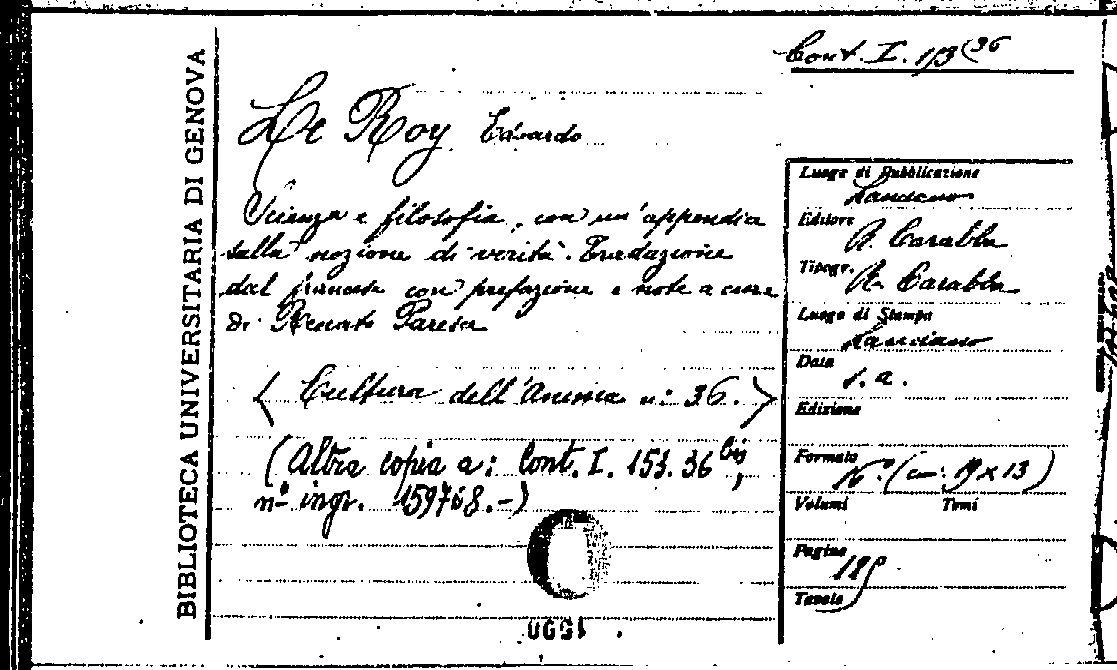 BIBLIOTECA UNIVERSITARIA DI GENOVA
Cont. I. 113(36
Le Roy Eduardo
Scienza e filosofia, con un'appendia
sulla nozione di verità. Traduzione
dal francese con prefazione e note a cura
di Renato
( Cultura dell'Anima n: 36. )
(Altra copia a: Cont. I. 153. 36 bis,
nº ingr. 159768.-)
Luogo di Pubblicazione
Lanciano
Editore
R. Carabba
Tipogr.
R. Carabba
Luogo di Stampa
Lanciano
Data
s. a.
Edizione
Formato
16º (cm: 19x13)
Volumi Tomi
Pagine
Tavole